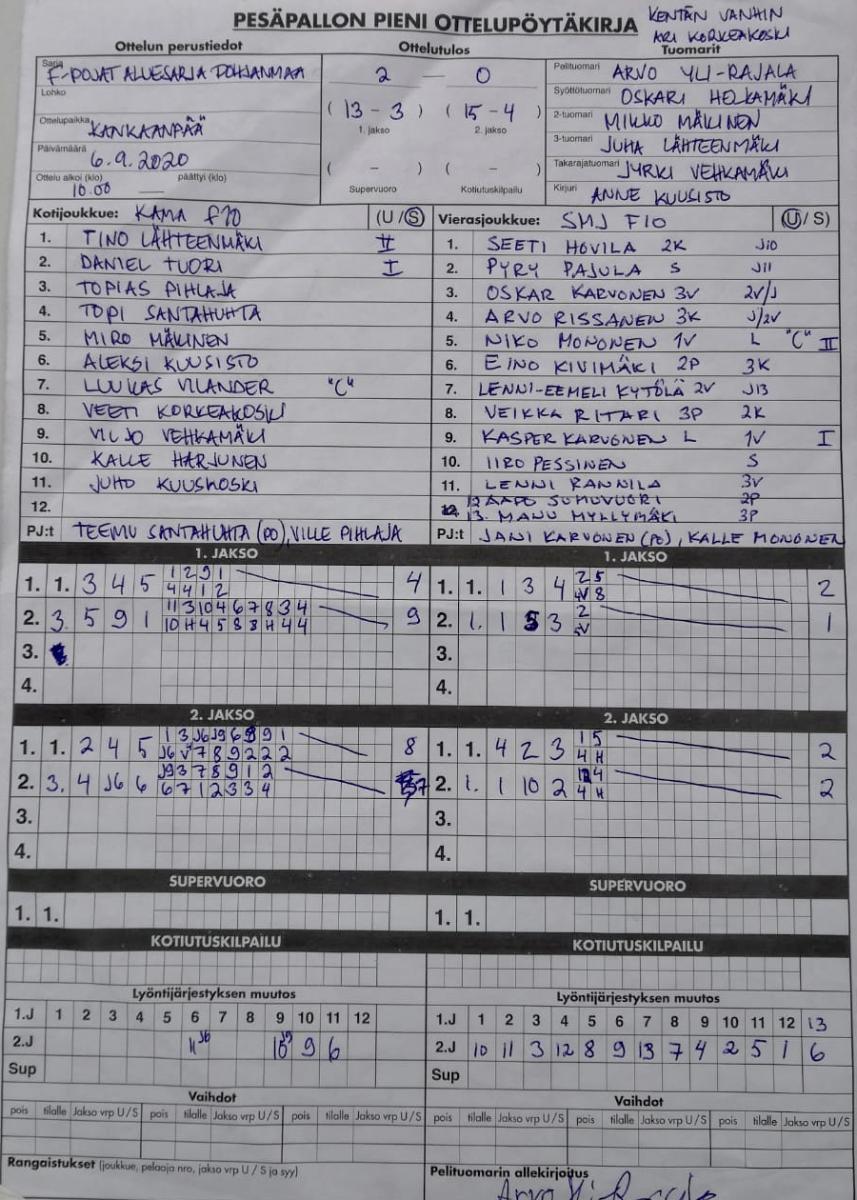 PESÄPALLON PIENI OTTELUPÖYTÄKIRJA
KENTÄN VANHIN
ARI KORKEAKOSKI
Ottelun perustiedot Ottelutulos Tuomarit
Sarja F-POJAT ALUESARJA POHJANMAA
Lohko
Ottelupaikka KANKAANPÄÄ
Päivämäärä 6.9.2020
Ottelu alkoi (klo) 10.00 — päättyi (klo)
2 — 0
( 13 - 3 ) ( 15 - 4 )
1. jakso 2. jakso
( - ) ( - )
Supervuoro Kotiutuskilpailu
Pelituomari ARVO YLI-RAJALA
Syöttötuomari OSKARI HELKAMÄKI
2-tuomari MIKKO MÄKINEN
3-tuomari JUHA LÄHTEENMÄKI
Takarajatuomari JYRKI VEHKAMÄKI
Kirjuri ANNE KUUSISTO
Kotijoukkue: KAMA F10 (U / S)
1. TINO LÄHTEENMÄKI II
2. DANIEL TUORI I
3. TOPIAS PIHLAJA
4. TOPI SANTAHUHTA
5. MIRO MÄKINEN
6. ALEKSI KUUSISTO
7. LUUKAS VILANDER "C"
8. VEETI KORKEAKOSKI
9. VILJO VEHKAMÄKI
10. KALLE HARJUNEN
11. JUHO KUUSKOSKI
12.
PJ:t TEEMU SANTAHUHTA (PO), VILLE PIHLAJA
Vierasjoukkue: SMJ F10 (U / S)
1. SEETI HOVILA 2K J10
2. PYRY PAJULA S J11
3. OSKAR KARVONEN 3V 2V/J
4. ARVO RISSANEN 3K J/2V
5. NIKO MONONEN 1V L "C" II
6. EINO KIVIMÄKI 2P 3K
7. LENNI-EEMELI KYTÖLÄ 2V J13
8. VEIKKA RITARI 3P 2K
9. KASPER KARVONEN L 1V I
10. IIRO PESSINEN S
11. LENNI RANNILA 3V
12. AAPO SUMUVUORI 2P
13. MANU MYLLYMÄKI 3P
PJ:t JANI KARVONEN (PE), KALLE MONONEN
1. JAKSO
1. 1. 3 4 5 1 2 9 1 4
4 4 1 2
2. 3. 5 9 1 11 3 10 4 6 7 8 3 4 9
10 H 4 5 8 3 H 4 4
3.
4.
1. JAKSO
1. 1. 1 3 4 2 5 2
4V 8
2. 1. 1 5 3 2 1
5V
3.
4.
2. JAKSO
1. 1. 2 4 5 1 3 J6 J9 6 8 9 1 8
J6 V 7 8 9 2 2 2
2. 3. 4 J6 6 J9 3 7 8 9 1 2 7
6 7 1 2 3 3 4
3.
4.
2. JAKSO
1. 1. 4 2 3 1 5 2
4 H
2. 1. 1 10 2 12 4 2
4 H
3.
4.
SUPERVUORO
1. 1.
SUPERVUORO
1. 1.
KOTIUTUSKILPAILU
KOTIUTUSKILPAILU
Lyöntijärjestyksen muutos
1.J 1 2 3 4 5 6 7 8 9 10 11 12
2.J 11 J6 10 J9 9 6
Sup
Lyöntijärjestyksen muutos
1.J 1 2 3 4 5 6 7 8 9 10 11 12 13
2.J 10 11 3 12 8 9 13 7 4 2 5 1 6
Sup
Vaihdot
pois tilalle Jakso vrp U / S pois tilalle Jakso vrp U / S pois tilalle Jakso vrp U / S
Vaihdot
pois tilalle Jakso vrp U / S pois tilalle Jakso vrp U / S pois tilalle Jakso vrp U / S
Rangaistukset (joukkue, pelaaja nro, jakso vrp U / S ja syy)
Pelituomarin allekirjoitus